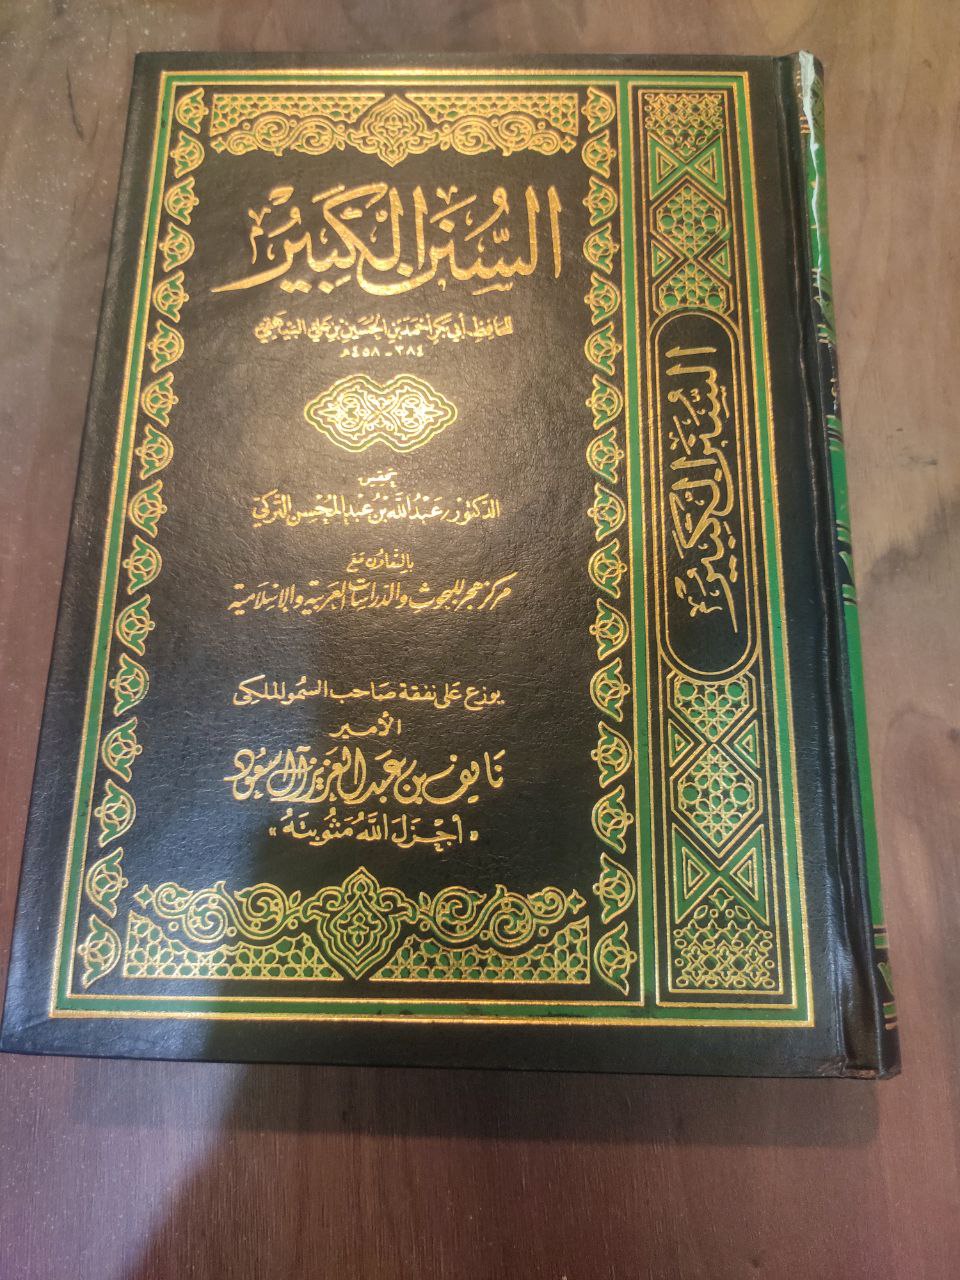 السُّنَنُ الكَبِيرُ
للحَافِظِ أبي بَكرٍ أحْمَدَ بْنِ الحُسَيْنِ بْنِ عَلي البَيهَقِيّ
٣٨٤ - ٤٥٨ هـ
تحقيق
الدكتور / عَبْدُ اللَّه بْنُ عَبْدِ المُحْسِنِ التركي
بالتعَاوُن مَعَ
مركز هجر للبحوث والدراسات العربية والإسلامية
يوزع عَلى نفقة صَاحب السُّمو الملكي
الأمير
نَايف بن عبد العزيز آل سعُود
« أجْزَلَ اللَّهُ مَثُوبتَهُ »
السُّنَنُ الكَبِيرُ